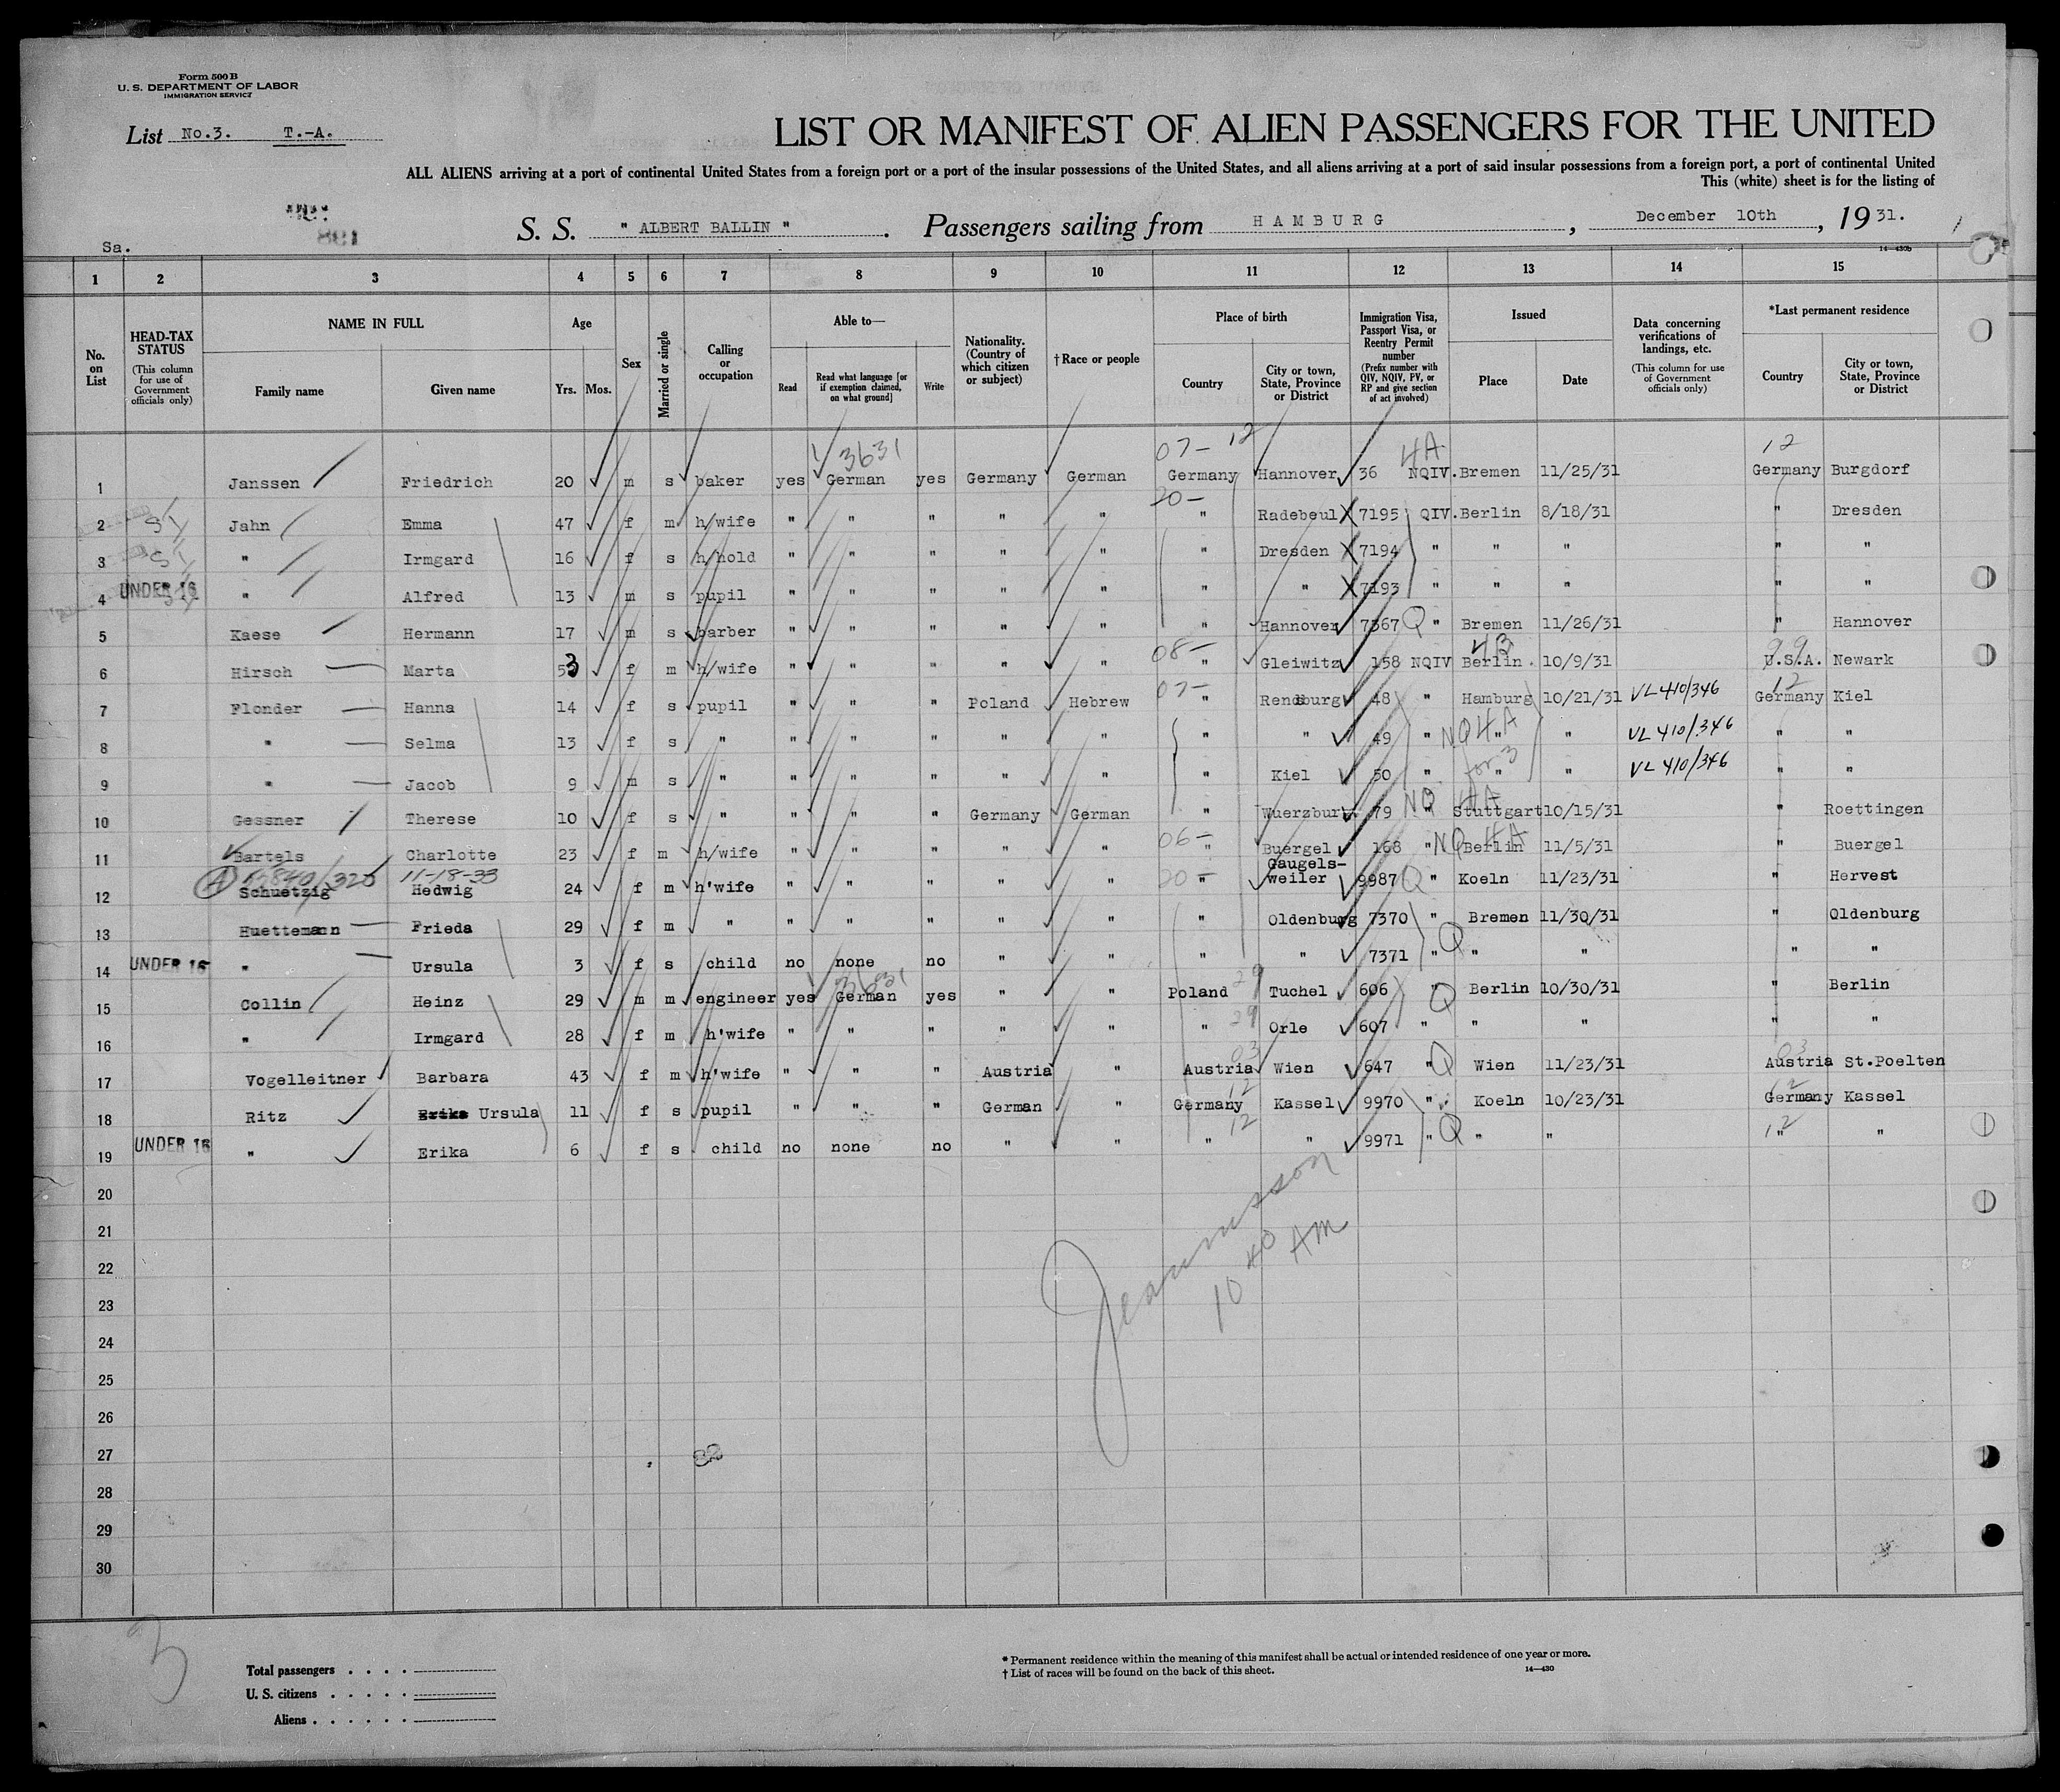 Form 500 B
U. S. DEPARTMENT OF LABOR
IMMIGRATION SERVICE
List No.3. T.-A.
LIST OR MANIFEST OF ALIEN PASSENGERS FOR THE UNITED
ALL ALIENS arriving at a port of continental United States from a foreign port or a port of the insular possessions of the United States, and all aliens arriving at a port of said insular possessions from a foreign port, a port of continental United
This (white) sheet is for the listing of
801
Sa.
S. S. " ALBERT BALLIN " . Passengers sailing from HAMBURG , December 10th , 1931.
14—430b
1 2 3 4 5 6 7 8 9 10 11 12 13 14 15
No. on List
HEAD-TAX STATUS (This column for use of Government officials only)
NAME IN FULL Family name Given name
Age Yrs. Mos.
Sex
Married or single
Calling or occupation
Able to— Read Read what language [or if exemption claimed, on what ground] Write
Nationality. (Country of which citizen or subject)
†Race or people
Place of birth Country City or town, State, Province or District
Immigration Visa, Passport Visa, or Reentry Permit number (Prefix number with QIV, NQIV, PV, or RP and give section of act involved)
Issued Place Date
Data concerning verifications of landings, etc. (This column for use of Government officials only)
*Last permanent residence Country City or town, State, Province or District
3631 07- 12 4A 12
1 Janssen Friedrich 20 m s baker yes German yes Germany German Germany Hannover 36 NQIV. Bremen 11/25/31 Germany Burgdorf
20-
2 Jahn Emma 47 f m h/wife " " " " " " Radebeul 7195 QIV. Berlin 8/18/31 " Dresden
3 " Irmgard 16 f s h/hold " " " " " " Dresden 7194 " " " " "
4 UNDER 16 " Alfred 13 m s pupil " " " " " " " 7193 " " " " "
5 Kaese Hermann 17 m s barber " " " " " " Hannover 7367 Q " Bremen 11/26/31 " Hannover
08- 4B 99
6 Hirsch Marta 53 f m h/wife " " " " " " Gleiwitz 158 NQIV Berlin. 10/9/31 U.S.A. Newark
07- 12
7 Flonder Hanna 14 f s pupil " " " Poland Hebrew " Rendsburg 48 " Hamburg 10/21/31 VL 410/346 Germany Kiel
8 " Selma 13 f s " " " " " " " " 49 " NQ4A " " VL 410/346 " "
9 " Jacob 9 m s " " " " " " " Kiel 50 " for 3 " " VL 410/346 " "
10 Gessner Therese 10 f s " " " " Germany German " Wuerzburg 79 NQ 4A Stuttgart 10/15/31 " Roettingen
06-
11 Bartels Charlotte 23 f m h/wife " " " " " " Buergel 168 " NQ 4A Berlin 11/5/31 " Buergel
A 320 11-18-33
12 Schuetzig Hedwig 24 f m h'wife " " " " " 20- " Gaugels-weiler 9987 Q " Koeln 11/23/31 " Hervest
13 Huettemann Frieda 29 f m " " " " " " " Oldenburg 7370 " Bremen 11/30/31 " Oldenburg
14 UNDER 16 " Ursula 3 f s child no none no " " " " 7371 " Q " " " "
29
15 Collin Heinz 29 m m engineer yes German yes " " Poland Tuchel 606 " Q Berlin 10/30/31 " Berlin
16 " Irmgard 28 f m h'wife " " " " " " 29 Orle 607 " " " " "
03 03
17 Vogelleitner Barbara 43 f m h'wife " " " Austria " Austria Wien 647 " Q Wien 11/23/31 Austria St.Poelten
12 12
18 Ritz Erika Ursula 11 f s pupil " " " German " Germany Kassel 9970 " Koeln 10/23/31 Germany Kassel
12 12
19 UNDER 16 " Erika 6 f s child no none no " " " " 9971 " Q " " " "
20
21
22
10 40 AM
23
24
25
26
27
28
29
30
3
Total passengers . . . .
U. S. citizens . . . . .
Aliens . . . . . .
* Permanent residence within the meaning of this manifest shall be actual or intended residence of one year or more.
† List of races will be found on the back of this sheet.
14—430